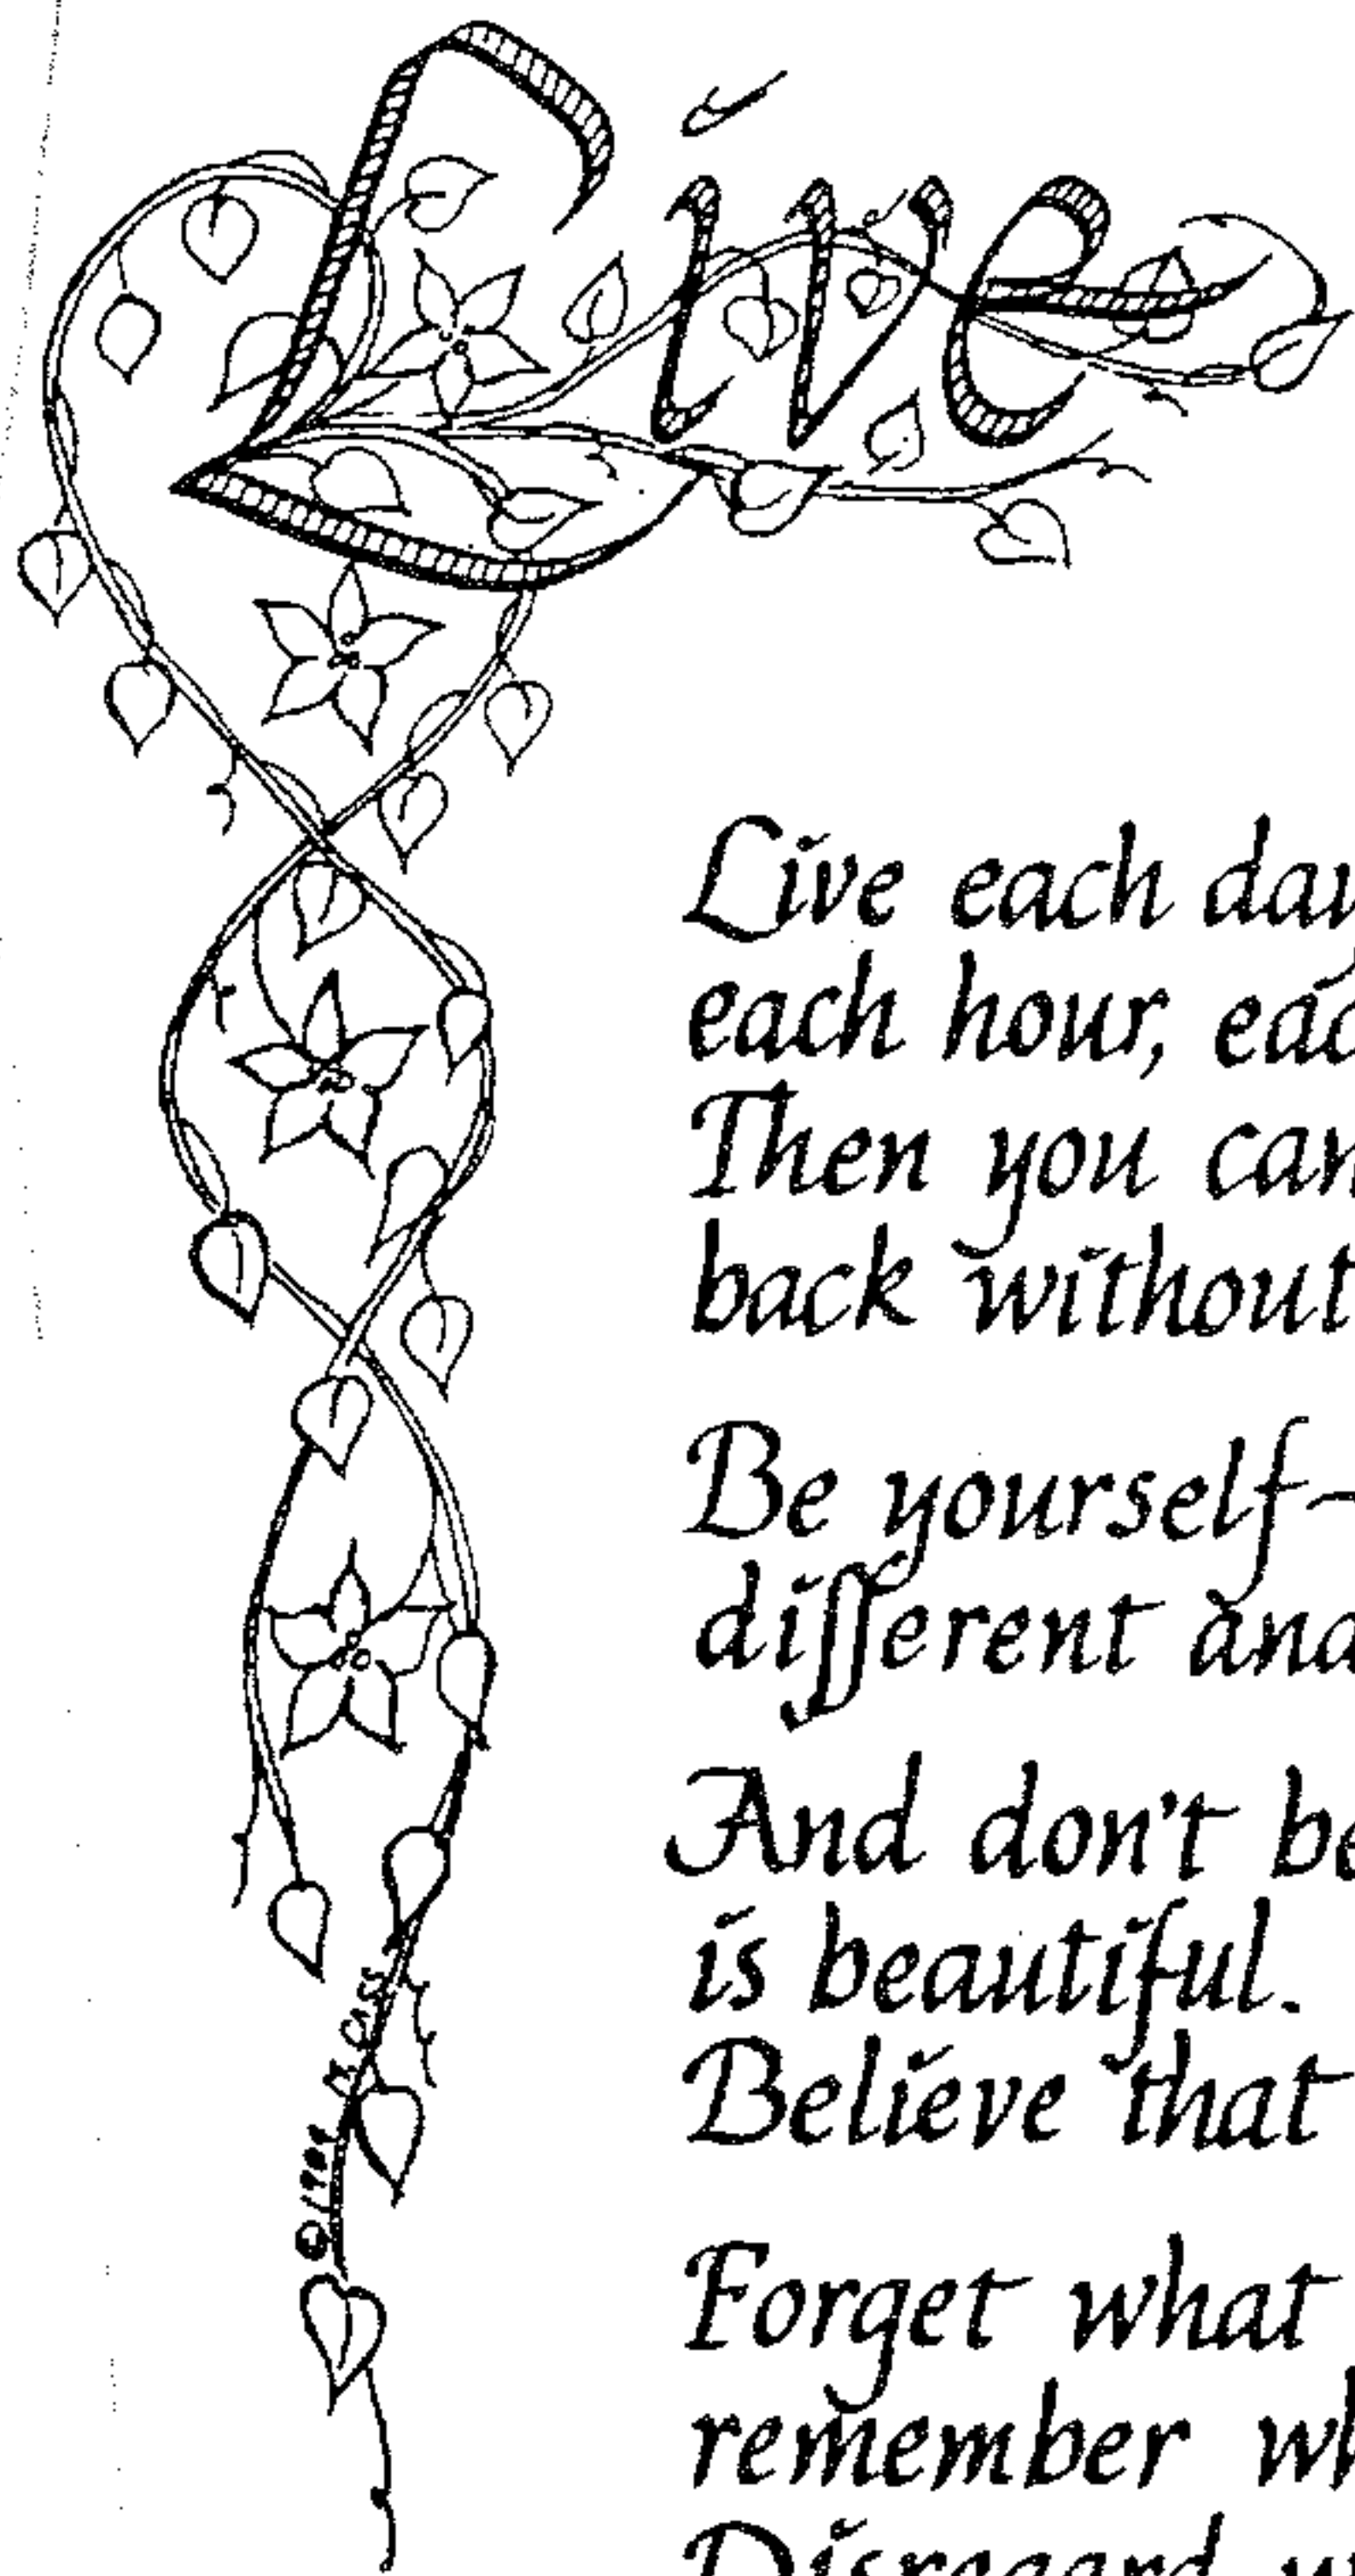 Live
Live each day
each hour, eac
Then you can
back without
Be yourself-
different and
And don't be
is beautiful.
Believe that
Forget what
remember wh
Disregard w